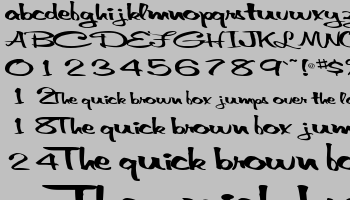 abcdefghijklmnopqrstuvwxyz
ABCDEFGHIJKLMNO
0123456789~!@#$
12 The quick brown box jumps over the
18 The quick brown box jum
24 The quick brown bo